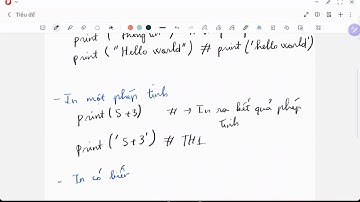 Tiêu đề
print ("thông tin")
print ("Hello world") # print('hello world')
- In một phép tính
print (5+3) # → In ra kết quả phép
tính
print ('5+3') # TH1
- In có biến